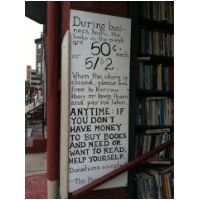 During busi-
ness hours, the
books on the
are
50¢
or each
5/$2
When the store is
closed, please feel
free to borrow
then or keep them
and pay me later.
ANYTIME: IF
YOU DON'T
HAVE MONEY
TO BUY BOOKS
AND NEED OR
WANT TO READ,
HELP YOURSELF.
Donations accepted
-The